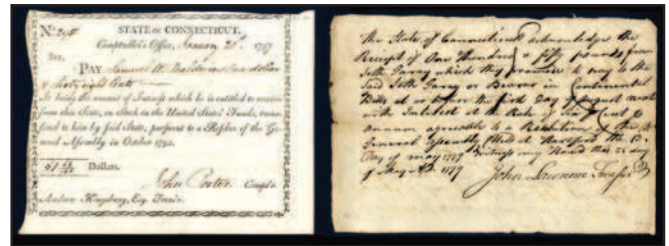 STATE OF CONNECTICUT.
Comptroller's Office, January 20th 1797
SIR,
PAY Samuel W. Baldwin One dollar
& thirty eight Cents
It being the amount of Interest which he is entitled to receive
from this State, on Stock in the United States' Funds, trans-
ferred to him by said State, pursuant to a Resolve of the Ge-
neral Assembly in October 1792.
Dollars.
John Porter Compt.
Andrew Kingsbury, Esq. Treas'r.
The State of Connecticut acknowledge the
Receipt of One Hundred & fifty pounds from
Seth Harvey which they promise to pay to the
said Seth or Bearer in Continental
Bills at or before the first Day of August next
with Interest at the Rate of Six Cent
annum agreeable to a Resolution of the
General Assembly Held at Hartford the 13
Day of may 1779 Witness my Hand this 24 day
of May AD. 1779
John Lawrence Treasr